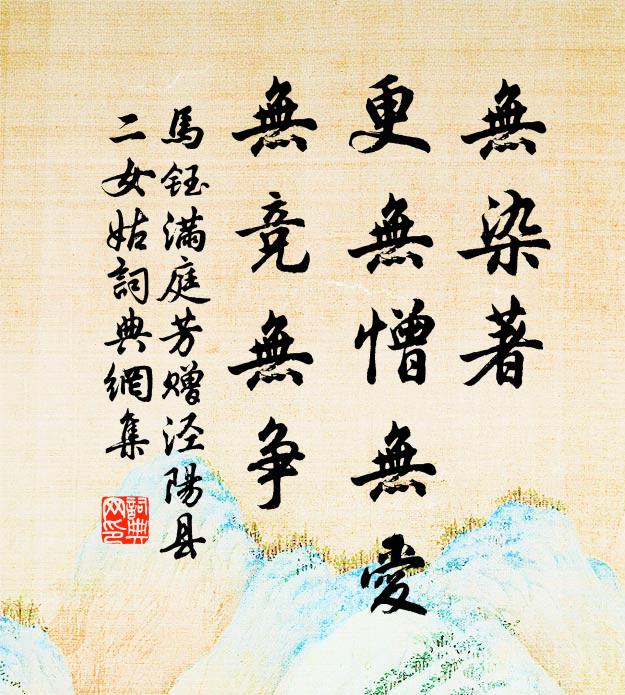 無染著
更無憎無愛
無競無争
馬鈺满庭芳赠泾陽县
二女姑詞典網集
詞典網印